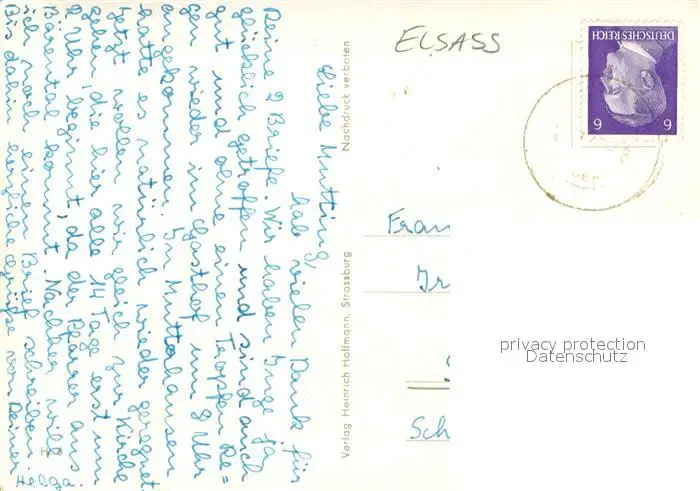 Liebe Mutting,
hab vielen Dank für
Deine 2 Briefe. Wir haben Inge ja
glücklich getroffen und sind auch
gut und ohne einen Tropfen Re=
gen wieder im Gasthof um 9 Uhr
angekommen. In Mutterhausen
hatte es natürlich wieder geregnet.
Jetzt wollen wir gleich zur Kirche
gehen, die hier alle 14 Tage erst um
2 Uhr beginnt, da der Pfarrer aus
Bärental kommt. Nachher will
ich noch einen Brief schreiben.
Bis dahin herzliche Grüße von Deiner
Helga.
Nachdruck verboten
Verlag Heinrich Hoffmann, Strassburg
ELSASS
DEUTSCHES REICH
6 6
Fran
Schl
privacy protection
Datenschutz